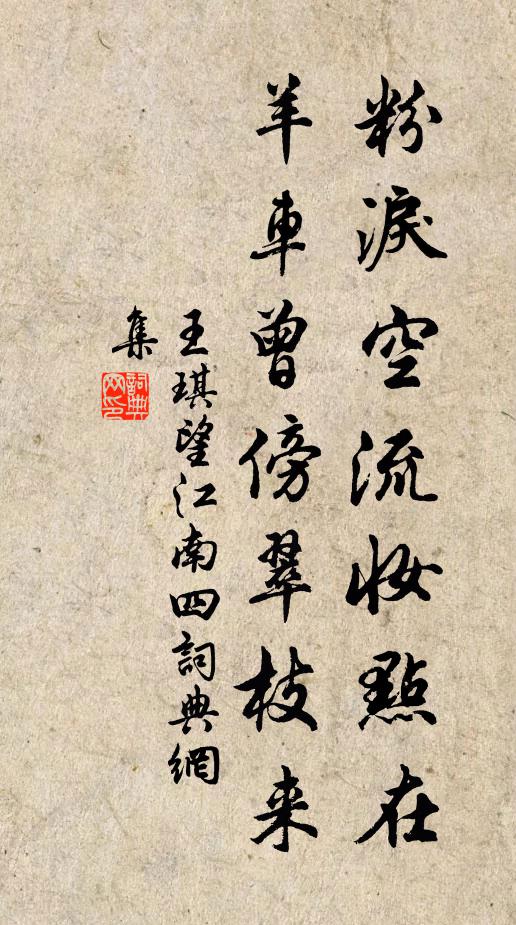 粉淚空流妝點在
羊車曾傍翠枝来
王琪望江南四詞典網
集
詞典網印